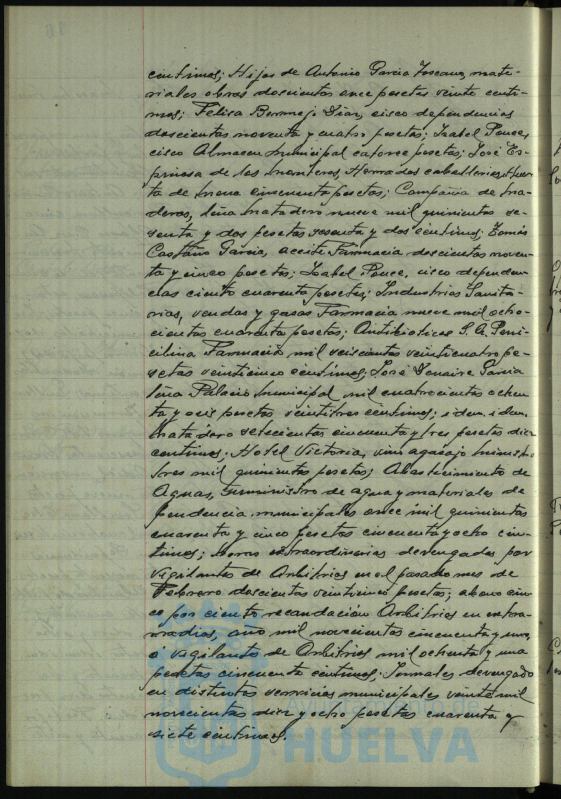 centimos; Hijos de Antonio Garcia Toscano, mate-
riales obras doscientas once pesetas veinte centi-
mos; Felisa Bermejo Diaz, cisco dependencias
doscientas noventa y cuatro pesetas; Isabel Ponce,
cisco Almacen municipal catorce pesetas; José Es-
pinosa de los Monteros, Herrados caballerias
ta de nova cincuenta pesetas; Compañia de ma-
deras, leña matadero nueve mil quinientas se-
senta y dos pesetas sesenta y dos centimos; Tomás
Castaño Garcia, aceite Farmacia doscientas noven-
ta y cinco pesetas; Isabel Ponce, cisco dependen-
cias ciento cuarenta pesetas; Industrias Sanita-
rias, vendas y gasas Farmacia nueve mil ocho-
cientas cuarenta pesetas; Antibioticos S.A. Peni-
cilina Farmacia mil seiscientas veinticuatro pe-
setas veinticinco centimos; José Garcia
leña Palacio Municipal mil cuatrocientas ochen-
ta y seis pesetas veintitres centimos; idem, idem,
matadero setecientas cincuenta y tres pesetas diez
centimos; Hotel Victoria, vino agasajo Ministro
tres mil quinientas pesetas; Abastecimiento de
Aguas, suministro de agua y materiales de
pendencia municipales once mil quinientas
cuarenta y cinco pesetas cincuenta y ocho cen-
timos; horas extraordinarias devengadas por
Vigilantes de Arbitrios en el pasado mes de
Febrero doscientas veinticinco pesetas; abono cin-
co por ciento recaudación Arbitrios en extra-
rradios, año mil novecientos cincuenta y uno,
a vigilante de Arbitrios mil ochenta y una
pesetas cincuenta centimos; Jornales devengado
en distintos servicios municipales veinte mil
novecientas diez y ocho pesetas cuarenta y
siete centimos.
Ayuntamiento de
HUELVA